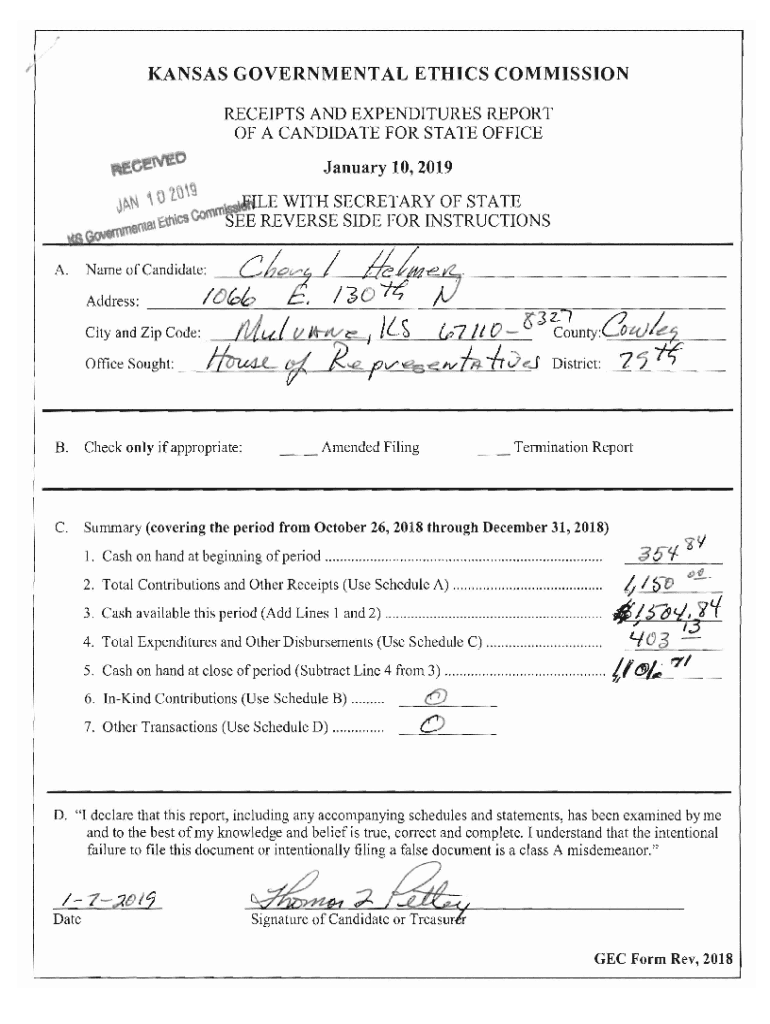 KANSAS GOVERNMENTAL ETHICS COMMISSION
RECEIPTS AND EXPENDITURES REPORT
OF A CANDIDATE FOR STATE OFFICE
RECEIVED
January 10, 2019
JAN 10 2019
FILE WITH SECRETARY OF STATE
KS Governmental Ethics Commission
SEE REVERSE SIDE FOR INSTRUCTIONS
A. Name of Candidate: Cheryl Helmer
Address: 1066 E. 130th N
City and Zip Code: Mulvane, KS 67110-8327 County: Cowley
Office Sought: House of Representatives District: 79th
B. Check only if appropriate: ____ Amended Filing ____ Termination Report
C. Summary (covering the period from October 26, 2018 through December 31, 2018)
1. Cash on hand at beginning of period ........ 354 84
2. Total Contributions and Other Receipts (Use Schedule A) ........ 1,150 00
3. Cash available this period (Add Lines 1 and 2) ........ $1,504.84
4. Total Expenditures and Other Disbursements (Use Schedule C) ........ 403 13
5. Cash on hand at close of period (Subtract Line 4 from 3) ........ 1,101.71
6. In-Kind Contributions (Use Schedule B) ........ 0
7. Other Transactions (Use Schedule D) ........ 0
D. “I declare that this report, including any accompanying schedules and statements, has been examined by me
and to the best of my knowledge and belief is true, correct and complete. I understand that the intentional
failure to file this document or intentionally filing a false document is a class A misdemeanor.”
1-7-2019 Thomas J Pettey
Date Signature of Candidate or Treasurer
GEC Form Rev, 2018